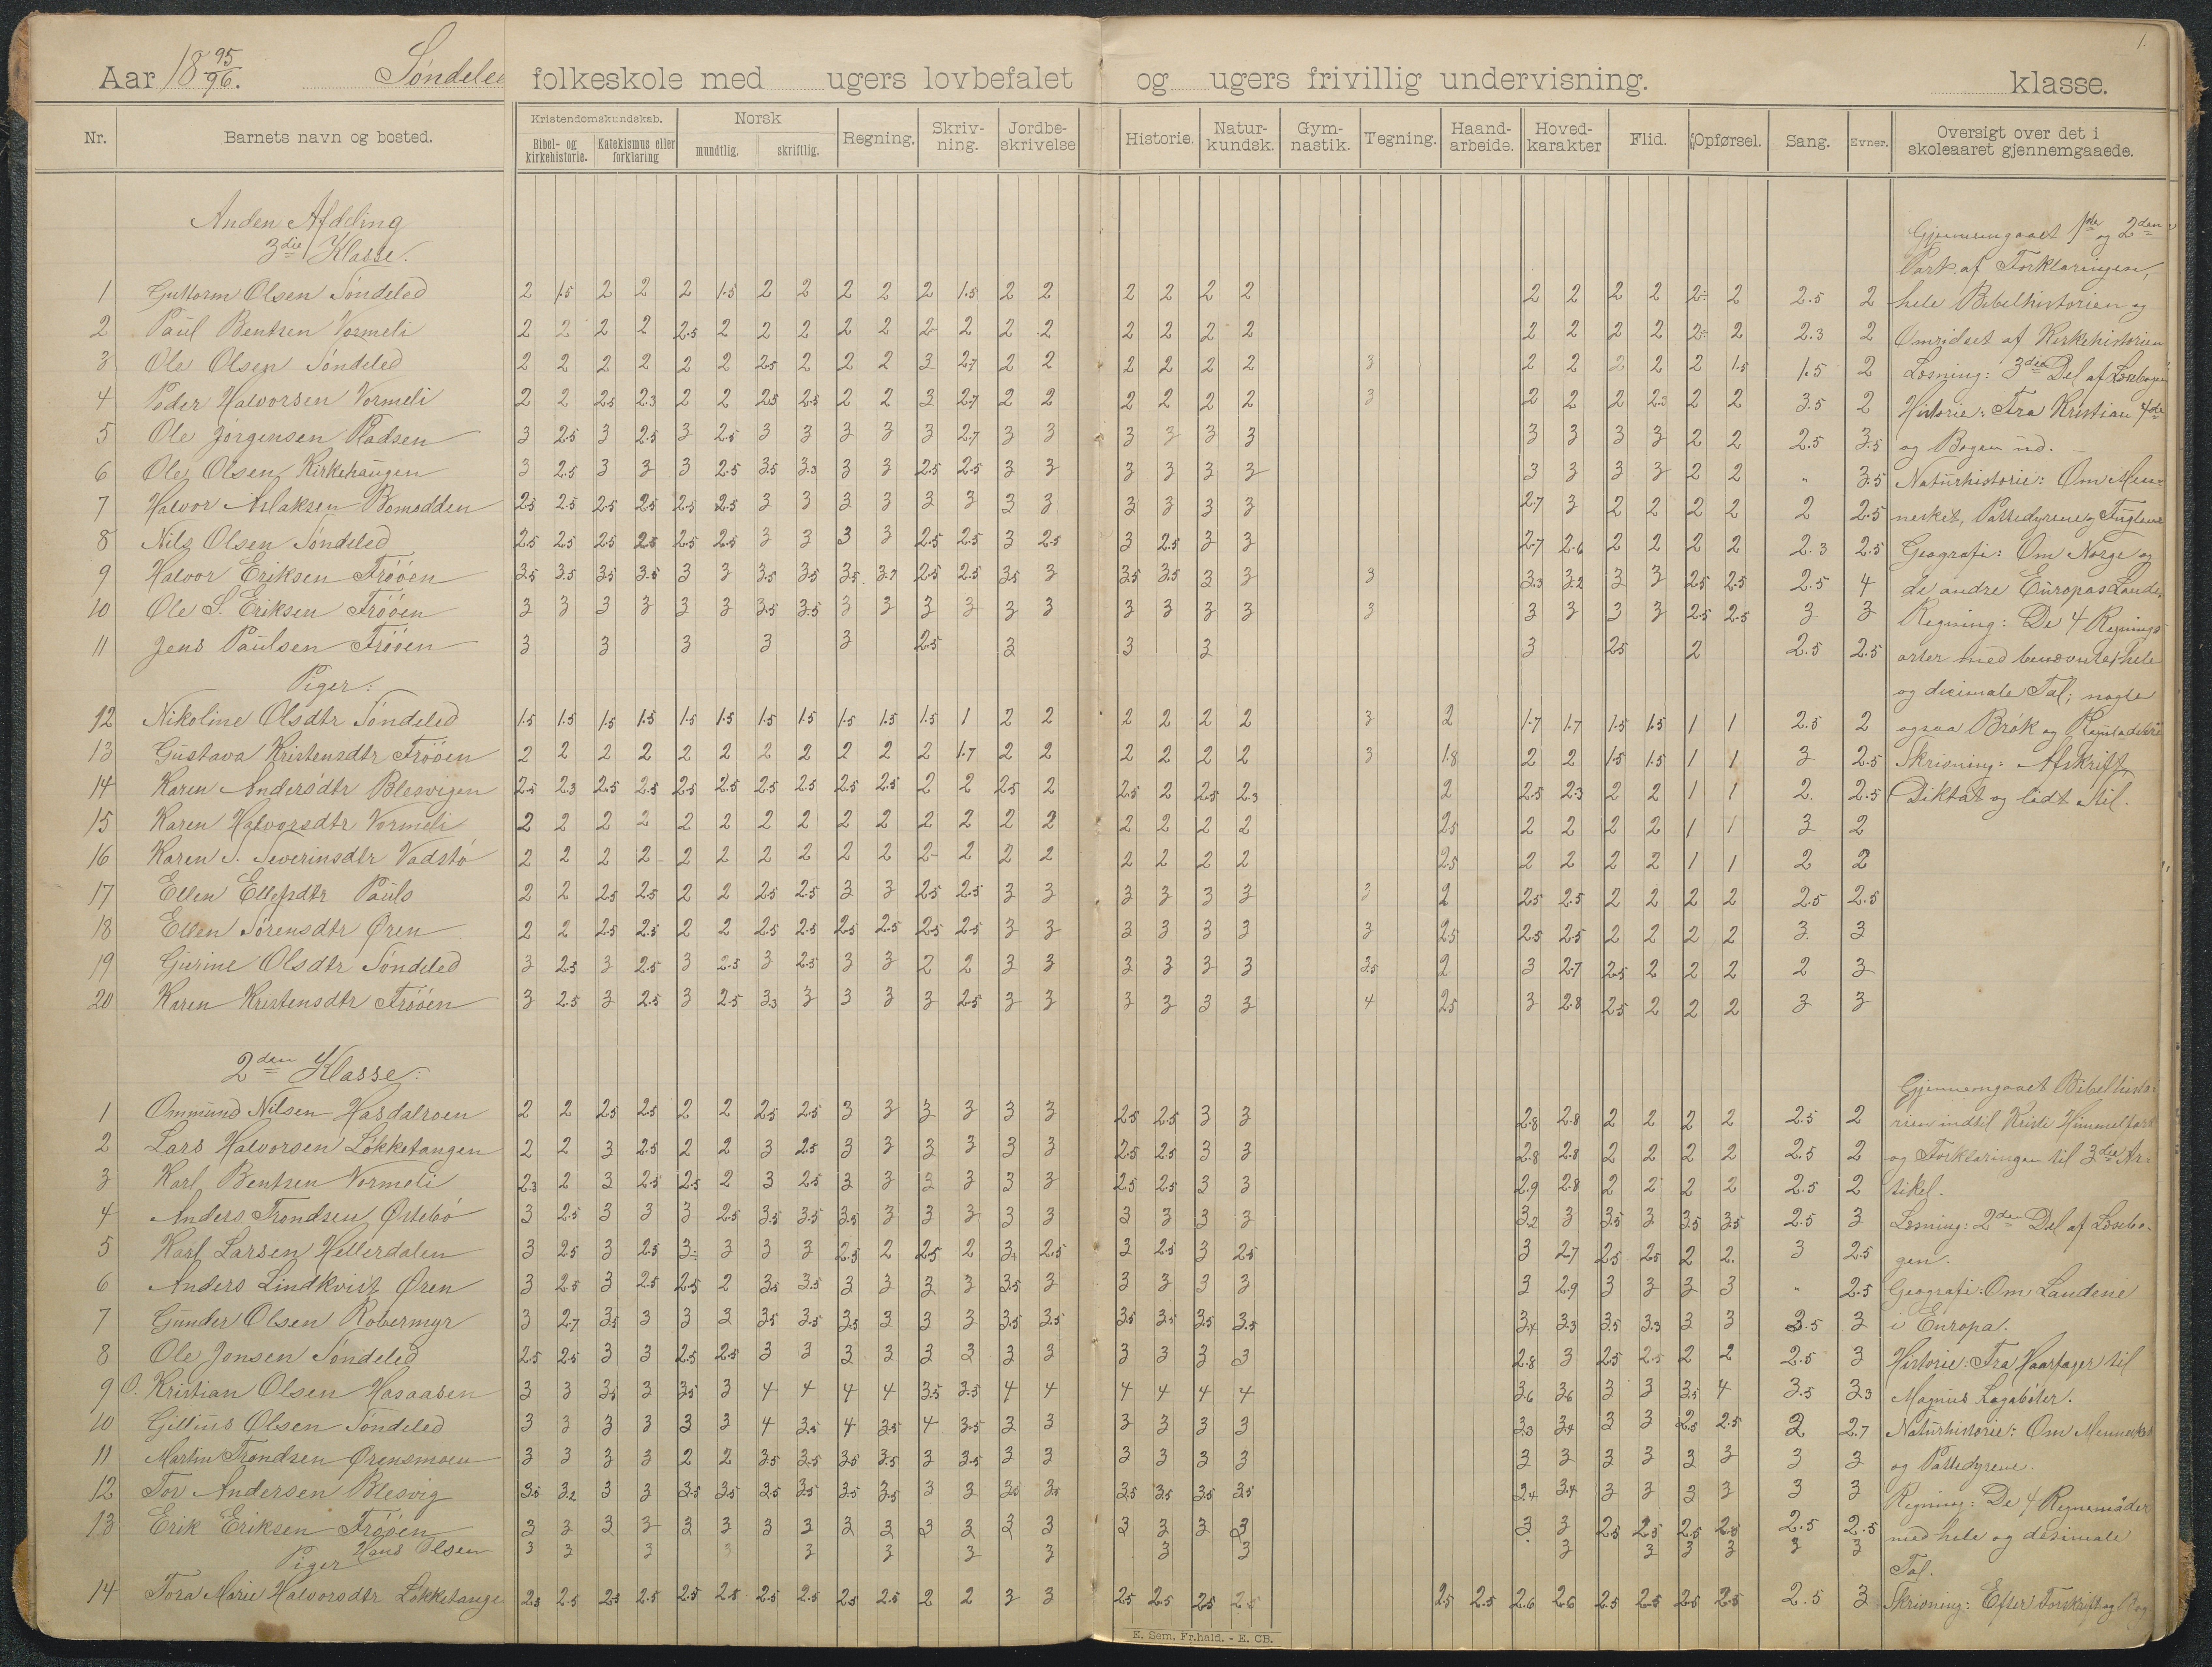 1.
Aar 18 95/96. Søndeled folkeskole med ugers lovbefalet og ugers frivillig undervisning. klasse.
Nr. Barnets navn og bosted. Kristendomskundskab. Bibel- og kirkehistorie. Katekismus eller forklaring Norsk mundtlig. skriftlig. Regning. Skriv-ning. Jordbe-skrivelse Historie. Natur-kundsk. Gym-nastik. Tegning. Haand-arbeide. Hoved-karakter Flid. Opførsel. Sang. Evner. Oversigt over det i skoleaaret gjennemgaaede.
Anden Afdeling
3die Klasse.
1 Guttorm Olsen Søndeled 2 1.5 2 2 2 1.5 2 2 2 2 2 1.5 2 2 2 2 2 2 2 2 2 2 2 2 2.5 2
2 Paul Bentsen Vormeli 2 2 2 2 2.5 2 2 2 2 2 2 2 2 2 2 2 2 2 2 2 2 2 2 2 2.3 2
3 Ole Olsen Søndeled 2 2 2 2 2 2 2.5 2 2 2 3 2.7 2 2 2 2 2 2 3 2 2 2 2 2 1.5 1.5 2
4 Peder Halvorsen Vormeli 2 2 2.5 2.3 2 2 2.5 2.5 2 2 3 2.7 2 2 2 2 2 2 3 2 2 2 2.5 2 2 3.5 2
5 Ole Jørgensen Pladsen 3 2.5 3 2.5 3 2.5 3 3 3 3 3 2.7 3 3 3 3 3 3 3 3 3 3 2 2 2.5 3.5
6 Ole Olsen Kirkehaugen 3 2.5 3 3 3 2.5 3.5 3.3 3 3 2.5 2.5 3 3 3 3 3 3 3 3 3 3 2 2 " 3.5
7 Halvor Aslaksen Bomodden 2.5 2.5 2.5 2.5 2.5 2.5 3 3 3 3 3 3 3 3 3 3 3 3 2.7 3 2 2 2 2 2 2.5
8 Nils Olsen Søndeled 2.5 2.5 2.5 2.5 2.5 2.5 3 3 3 3 2.5 2.5 3 2.5 3 2.5 3 3 2.7 2.6 2 2 2 2 2.3 2.5
9 Halvor Eriksen Frøøen 3.5 3.5 3.5 3.5 3 3 3.5 3.5 3.5 3.7 2.5 2.5 3.5 3 3.5 3.5 3 3 3 3.3 3.2 3 3 2.5 2.5 2.5 4
10 Ole S. Eriksen Frøøen 3 3 3 3 3 3 3.5 3.5 3 3 3 3 3 3 3 3 3 3 3 3 3 3 3 2.5 2.5 3 3
11 Jens Paulsen Frøøen 3 3 3 3 3 2.5 3 3 3 3 2.5 2 2.5 2.5
Piger:
12 Nikoline Olsdtr Søndeled 1.5 1.5 1.5 1.5 1.5 1.5 1.5 1.5 1.5 1.5 1.5 1 2 2 2 2 2 2 3 2 1.7 1.7 1.5 1.5 1 1 2.5 2
13 Gustava Kristensdtr Frøøen 2 2 2 2 2 2 2 2 2 2 2 1.7 2 2 2 2 2 2 3 1.8 2 2 1.5 1.5 1 1 3 2.5
14 Karen Andersdtr Blesvigen 2.5 2.3 2.5 2.5 2.5 2.5 2.5 2.5 2.5 2.5 2 2 2.5 2 2.5 2 2.5 2.3 2 2.5 2.3 2 2 1 1 2 2.5
15 Karen Halvorsdtr Vormeli 2 2 2 2 2 2 2 2 2 2 2 2 2 2 2 2 2 2 2.5 2 2 2 2 1 1 3 2
16 Karen S. Severinsdtr Vadstø 2 2 2 2 2 2 2 2 2 2 2 2 2 2 2 2 2 2 2.5 2 2 2 2 1 1 2 2
17 Ellen Ellefsdtr Pauls 2 2 2.5 2.5 2 2 2.5 2.5 3 3 2.5 2.5 3 3 3 3 3 3 3 2 2.5 2.5 2 2 2 2 2.5 2.5
18 Ellen Sørensdtr Øren 2 2 2.5 2.5 2 2 2.5 2.5 2.5 2.5 2.5 2.5 3 3 3 3 3 3 3 2.5 2.5 2.5 2 2 2 2 3 3
19 Gurine Olsdtr Søndeled 3 2.5 3 2.5 3 2.5 3 2.5 3 3 2 2 3 3 3 3 3 3 3.5 2 3 2.7 2.5 2 2 2 2 3
20 Karen Kristensdtr Frøøen 3 2.5 3 2.5 3 2.5 3.3 3 3 3 3 2.5 3 3 3 3 3 3 4 2.5 3 2.8 2.5 2 2 2 3 3
Gjennemgaaet 1ste og 2den
Part af Forklaringen,
hele Bibelhistorien og
Omridset af Kirkehistorien
Læsning: 3die Del af Læsebogen
Historie: Fra Kristian 4de
og Bogen ud.
Naturhistorie: Om Men-
nesket, Pattedyrene og Fuglene
Geografi: Om Norge og
de andre Europas Lande.
Regning: De 4 Regnings-
arter med benævnte hele
og decimale Tal; nogle
ogsaa Brøk og
Skrivning: Afskrift,
Diktat og lidt Stil.
2den Klasse:
1 Ommund Nilsen Hasdalroen 2 2 2.5 2.5 2 2 2.5 2.5 3 3 3 3 3 3 2.5 2.5 3 3 2.8 2.8 2 2 2 2 2.5 2
2 Lars Halvorsen Løkketangen 2 2 3 2.5 2 2 3 2.5 3 3 3 3 3 3 2.5 2.5 3 3 2.8 2.8 2 2 2 2 2.5 2
3 Karl Bentsen Vormeli 2.3 2 3 2.5 2.5 2 3 2.5 3 3 3 3 3 3 2.5 2.5 3 3 2.9 2.8 2 2 2 2 2.5 2
4 Anders Trondsen Østebø 3 2.5 3 3 3 2.5 3.5 3.5 3.5 3 3 3 3 3 3 3 3 3 3.2 3 3.5 3 3.5 3.5 2.5 3
5 Karl Larsen Hellerdalen 3 2.5 3 2.5 3 3 3 3 2.5 2 2.5 2 3 2.5 3 2.5 3 2.5 3 2.7 2.5 2.5 2 2 3 2.5
6 Anders Lindkvist Øren 3 2.5 3 2.5 2.5 2 3.5 3.5 3 3 3 3 3.5 3 3 3 3 3 3 2.9 3 3 3 3 " 2.5
7 Gunder Olsen Robermyr 3 2.7 3.5 3 3 3 3.5 3.5 3.5 3 3 3 3.5 3.5 3.5 3.5 3.5 3.5 3.4 3.3 3.5 3.3 3 3 3.5 3
8 Ole Jonsen Søndeled 2.5 2.5 3 3 2.5 2.5 3 3 3 3 3 3 3 3 3 3 3 3 2.8 3 2.5 2.5 2 2 2.5 3
9 O. Kristian Olsen Hasaasen 3 3 3.5 3 3.5 3 4 4 4 4 3.5 3.5 4 4 4 4 4 4 3.6 3.6 3 3 3.5 4 3.5 3.3
10 Gillius Olsen Søndeled 3 3 3 3 3 3 4 3.5 4 3.5 4 3.5 3 3 3 3 3 3 3.3 3.4 3 3 2.5 2.5 2 2.7
11 Martin Trondsen Ørensmoen 3 3 3 3 2 2 3.5 3.5 3.5 3.5 3 3.5 3 3 3 3 3 3 3 3 3 3 3 3 3 3
12 Tor Andersen Blesvig 3.5 3.2 3 3 3.5 3.5 3.5 3.5 3.5 3.5 3 3 3.5 3.5 3.5 3.5 3.5 3.5 3.4 3.4 3 3 3 3 3 3
13 Erik Eriksen Frøøen 3 3 3 3 3 3 3 3 3 3 3 3 3 3 3 3 3 3 3 3 2.5 2.5 2.5 2.5 2.5 2.5
Hans Olsen 3 3 3 3 3 3 3 3 3 3 3 3 3 3 3 3
Piger
14 Tora Marie Halvorsdtr Løkketange 2.5 2.5 2.5 2.5 2.5 2.5 2.5 2.5 2.5 2.5 2 2 3 3 2.5 2.5 2.5 2.5 2.5 2.5 2.6 2.6 2.5 2.5 2.5 2.5 2.5 3
Gjennemgaaet Bibelhisto-
rien indtil Kristi Himmelfart
og Forklaringen til 3die Ar-
tikel.
Læsning: 2den Del af Læsebo-
gen.
Geografi: Om Landene
i Europa.
Historie: Fra Haarfager til
Magnus Lagabøter.
Naturhistorie: Om Mennesket
og Pattedyrene.
Regning: De 4 Regnemåder
med hele og desimale
Tal.
Skrivning: Efter Forskrift og Bog
E. Sem. Fr.hald. - E. CB.